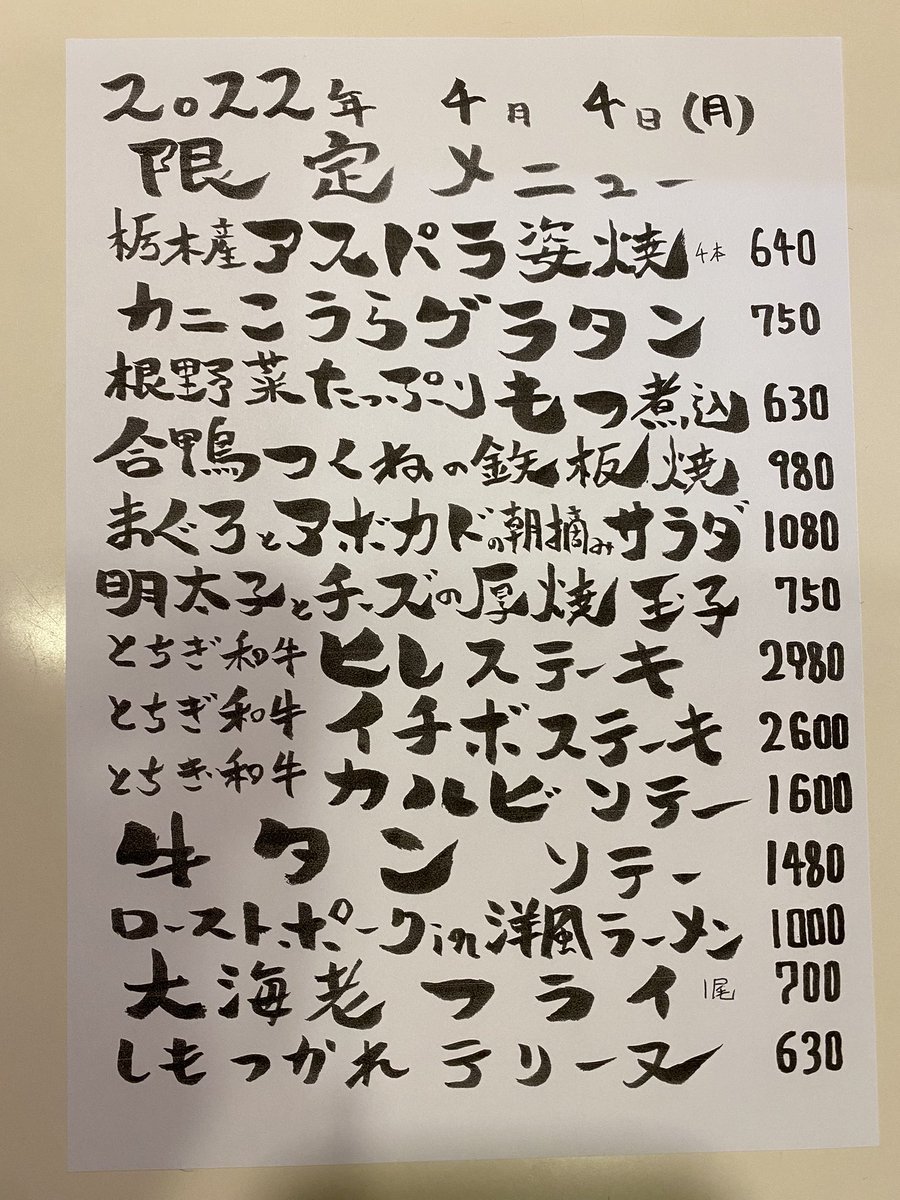 2022年 4月 4日(月)
限定メニュー
栃木産アスパラ姿焼 4本 640
カニこうらグラタン 750
根野菜たっぷりもつ煮込 630
合鴨つくねの鉄板焼 980
まぐろとアボカドの朝摘みサラダ 1080
明太子とチーズの厚焼玉子 750
とちぎ和牛 ヒレステーキ 2980
とちぎ和牛 イチボステーキ 2600
とちぎ和牛 カルビソテー 1600
牛タン ソテー 1480
ローストポークin洋風ラーメン 1000
大海老フライ 1尾 700
しもつかれテリーヌ 630